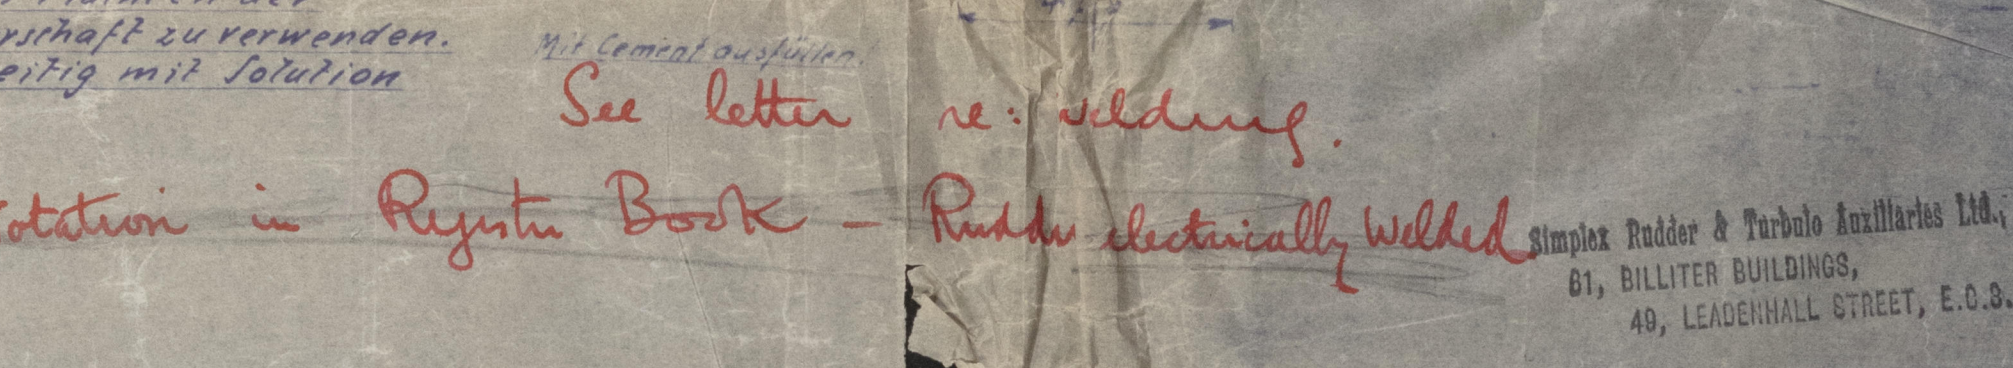 rschaft zu verwenden.
eitig mit Solution
Mit Cement ausfüllen!
See letter re: welding.
otation in Register Book - Rudder electrically Welded
Simplex Rudder & Turbulo Auxiliaries Ltd.,
81, BILLITER BUILDINGS,
49, LEADENHALL STREET, E.C.3.